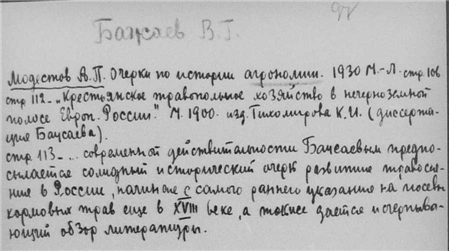 97
Бажаев В.Г.
Модестов А.П. Очерки по истории агрономии. 1930 М.-Л. стр 106
стр 112 - „Крестьянское травопольное хозяйство в нечерноземной
полосе Европ. России." М. 1900. изд. Тихомирова К.И. (диссерта-
ция Бажаева).
стр. 113 - ... современной действительности Бажаевым предпо-
сылается солидный исторический очерк развития травосея-
ния в России, начиная с самого раннего указания на посевы
кормовых трав еще в XVIII веке, а также дается исчерпыва-
ющий обзор литературы.